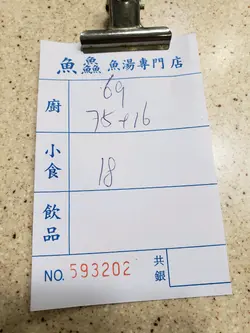 魚鱻魚湯專門店
廚
69
75+16
小食
18
飲品
NO. 593202
共銀